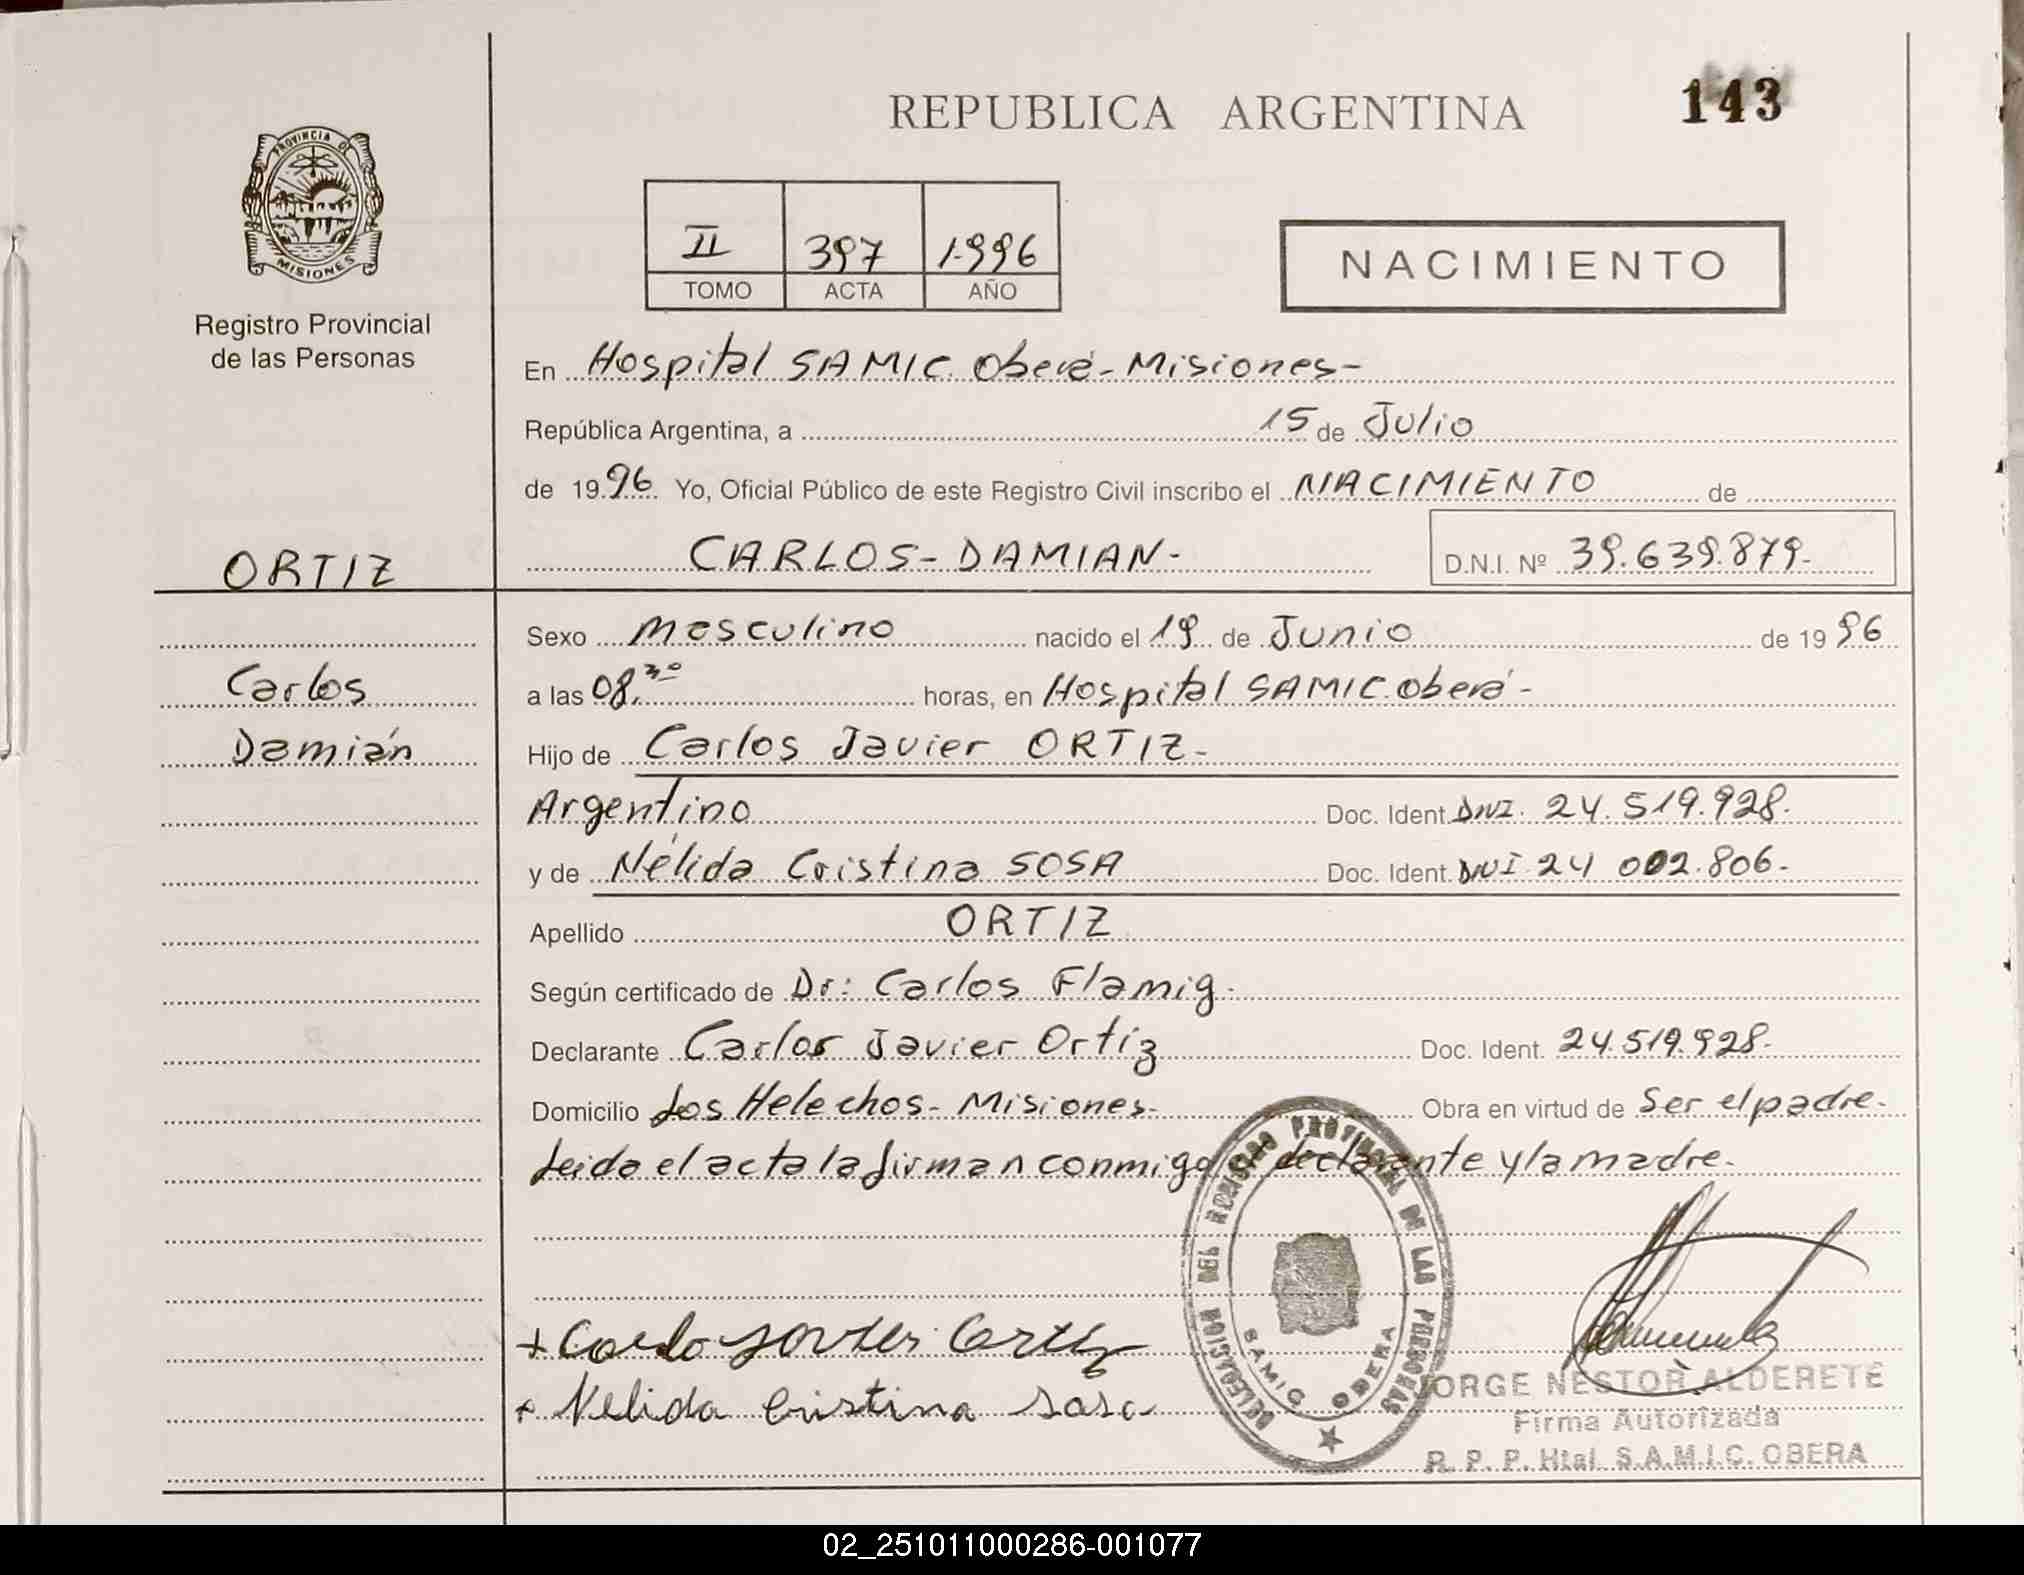 143
REPUBLICA ARGENTINA
PROVINCIA DE
MISIONES
Registro Provincial
de las Personas
II 397 1.996
TOMO ACTA AÑO
NACIMIENTO
En Hospital SAMIC. Oberá - Misiones -
República Argentina, a 15 de Julio
de 1996. Yo, Oficial Público de este Registro Civil inscribo el NACIMIENTO de
ORTIZ
CARLOS - DAMIAN - D.N.I. Nº 39.639.879.-
Sexo Masculino nacido el 19 de Junio de 1996
Carlos
a las 08.30 horas, en Hospital SAMIC. Oberá -
Damián
Hijo de Carlos Javier ORTIZ -
Argentino Doc. Ident. DNI. 24.519.928.
y de Nélida Cristina SOSA Doc. Ident. DNI 24 002.806.-
Apellido ORTIZ
Según certificado de Dr: Carlos Flamig.
Declarante Carlos Javier Ortiz Doc. Ident. 24.519.928.-
Domicilio Los Helechos - Misiones - Obra en virtud de Ser el padre.
Leida el acta la firman conmigo el declarante y la madre.
+ Carlo Javier Ortiz
+ Nelida Cristina Sosa
DELEGACION DEL REGISTRO PROVINCIAL DE LAS PERSONAS
SAMIC OBERA
JORGE NESTOR ALDERETE
Firma Autorizada
R. P. P. Htal. S.A.M.I.C. OBERA
02_251011000286-001077